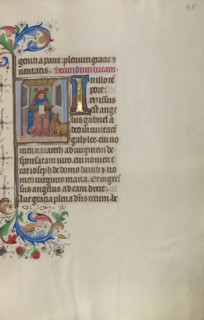 geniti a patre. plenum gratie et
veritatis. Secundum lucam.
In illo tē
pore
missus
est ange
lus gabriel a
deo in ciuitatē
galylee. cui no
men nazareth ad uirginem de
sponsatam uiro. cui nomen e
rat ioseph de domo dauid et no
men uirginis maria. Et ingres
sus angelus ad eam dixit.
Aue gracia plena dn̄s tecum. be